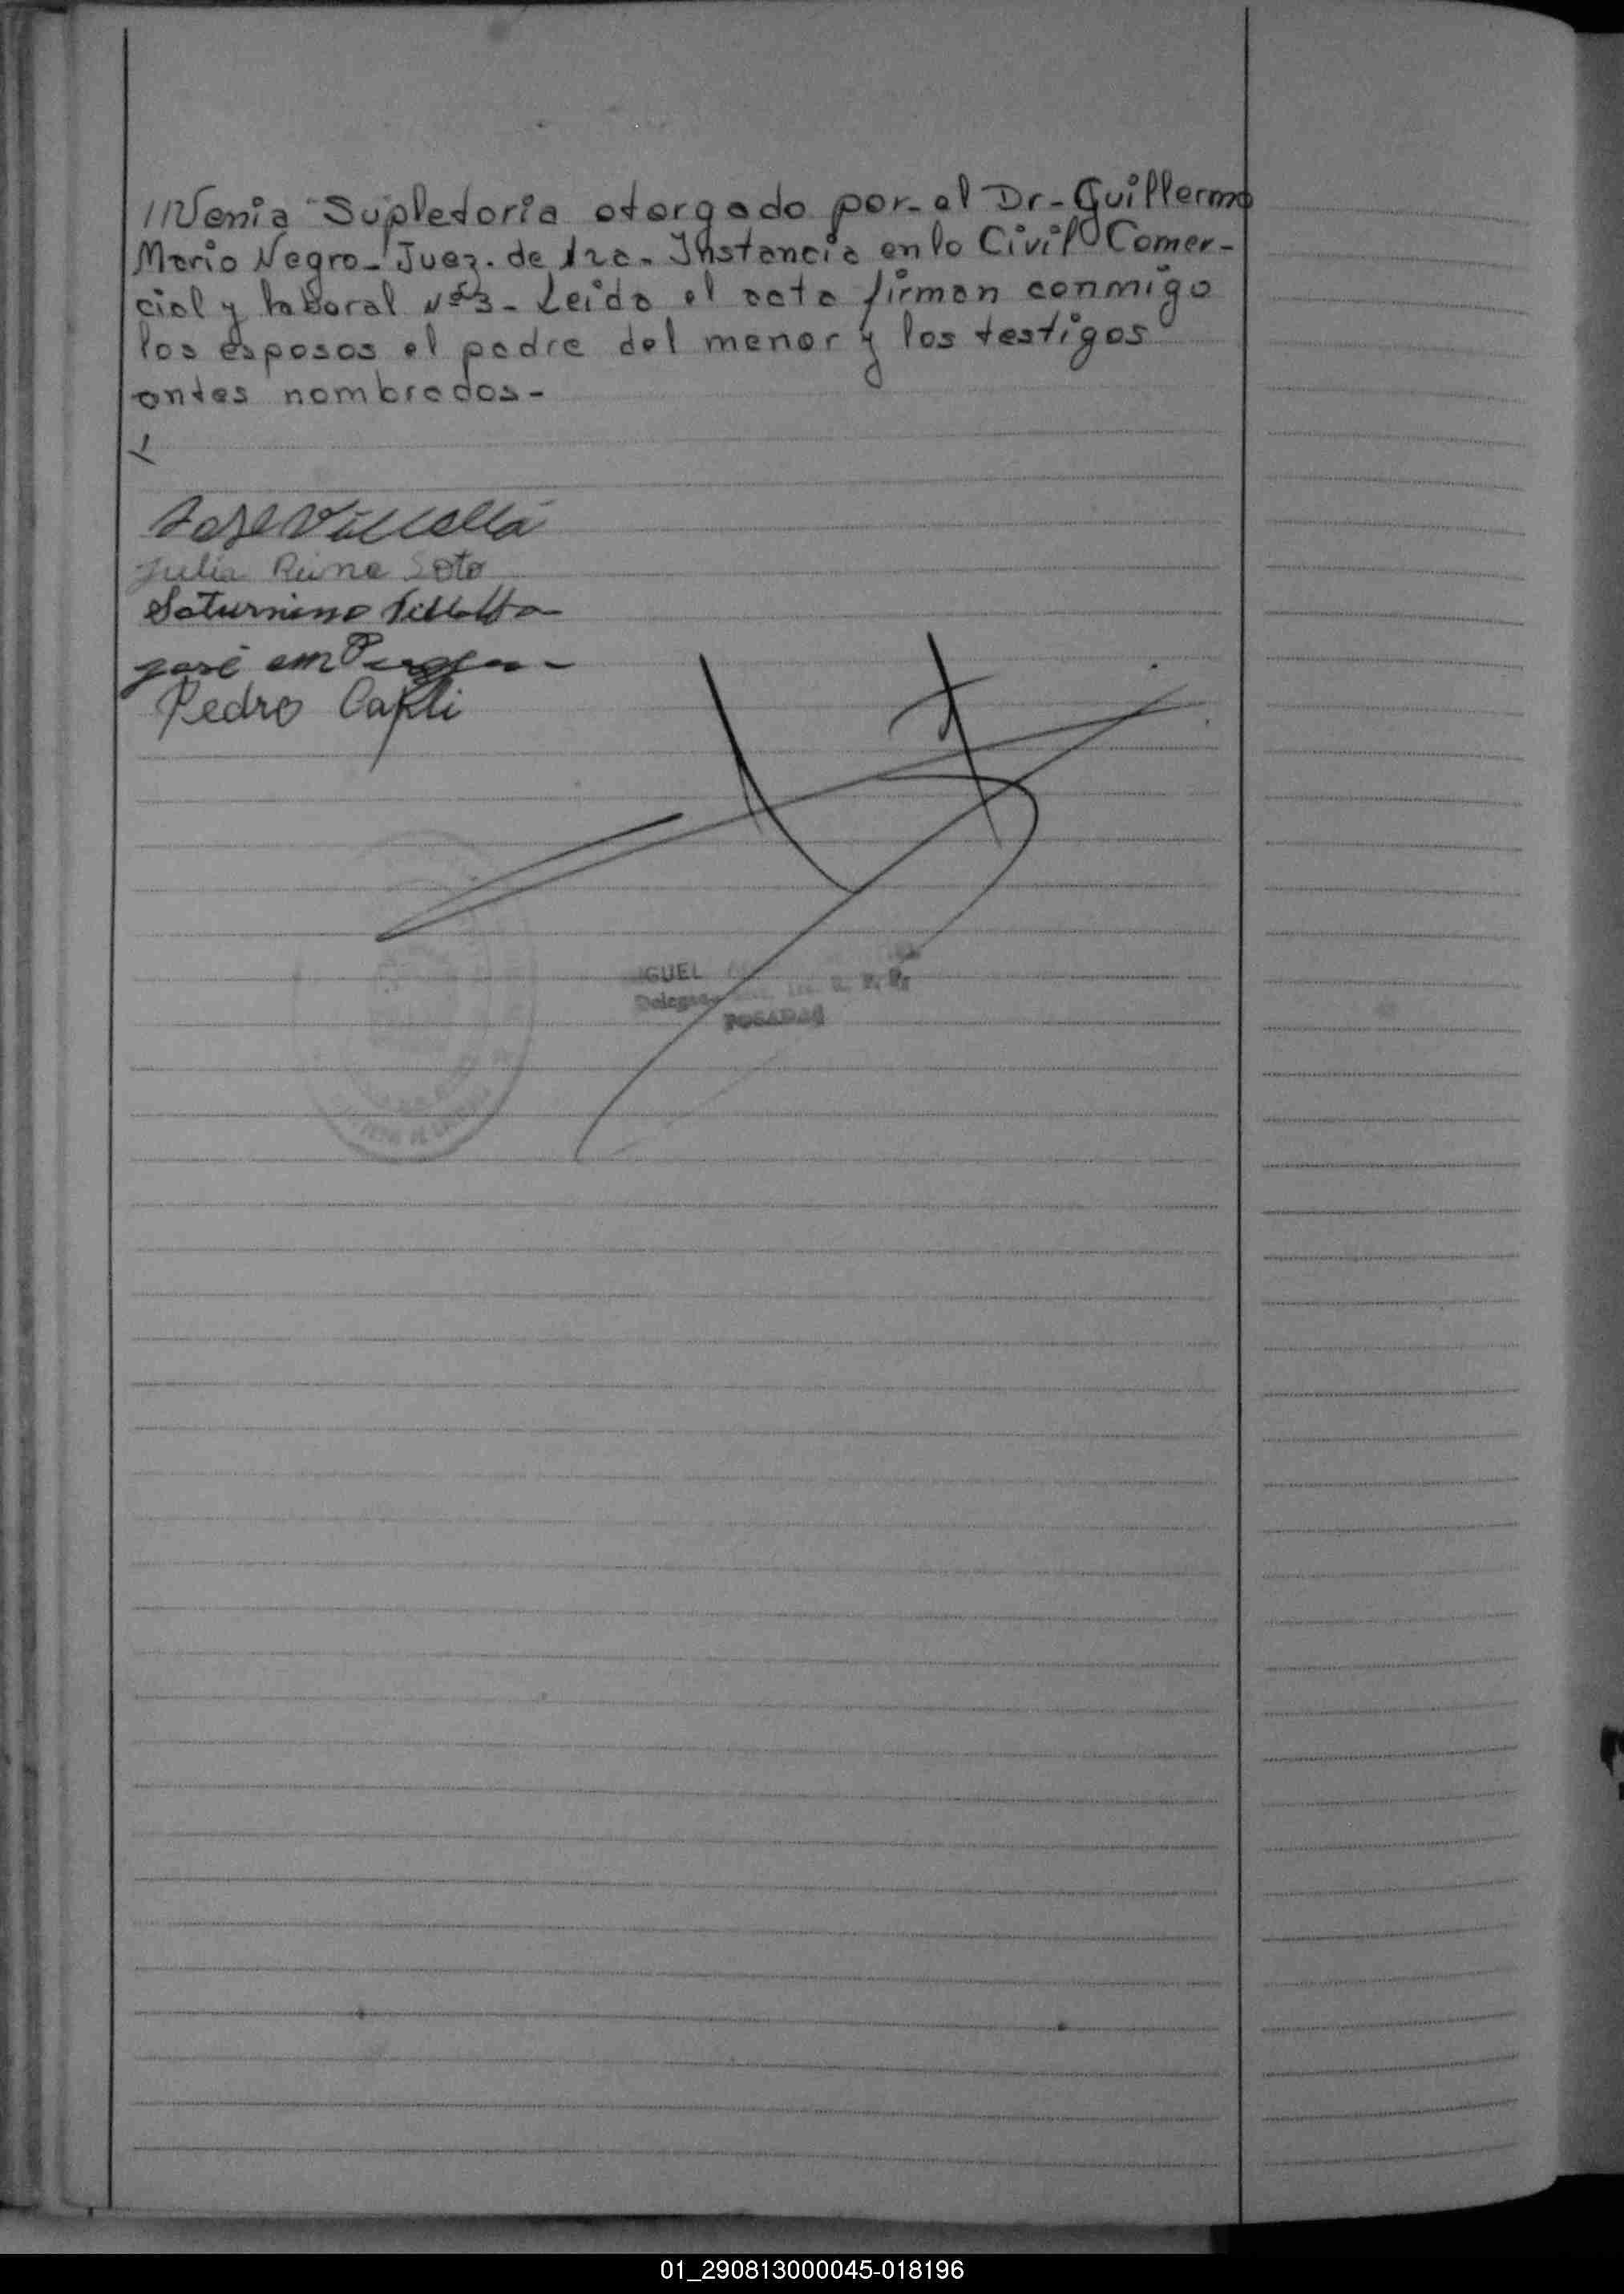 ///Venia Supletoria otorgado por-el Dr-Guillermo
Mario Negro-Juez. de 1ra. Instancia en lo Civil Comer-
cial y laboral Nº3- Leida el acta firman conmigo
los esposos el padre del menor y los testigos
antes nombrados-
Jose Villalba
Julia Reina Soto
Saturnino Villalba
José em
Pedro
GUEL
POSADAS
01_290813000045-018196